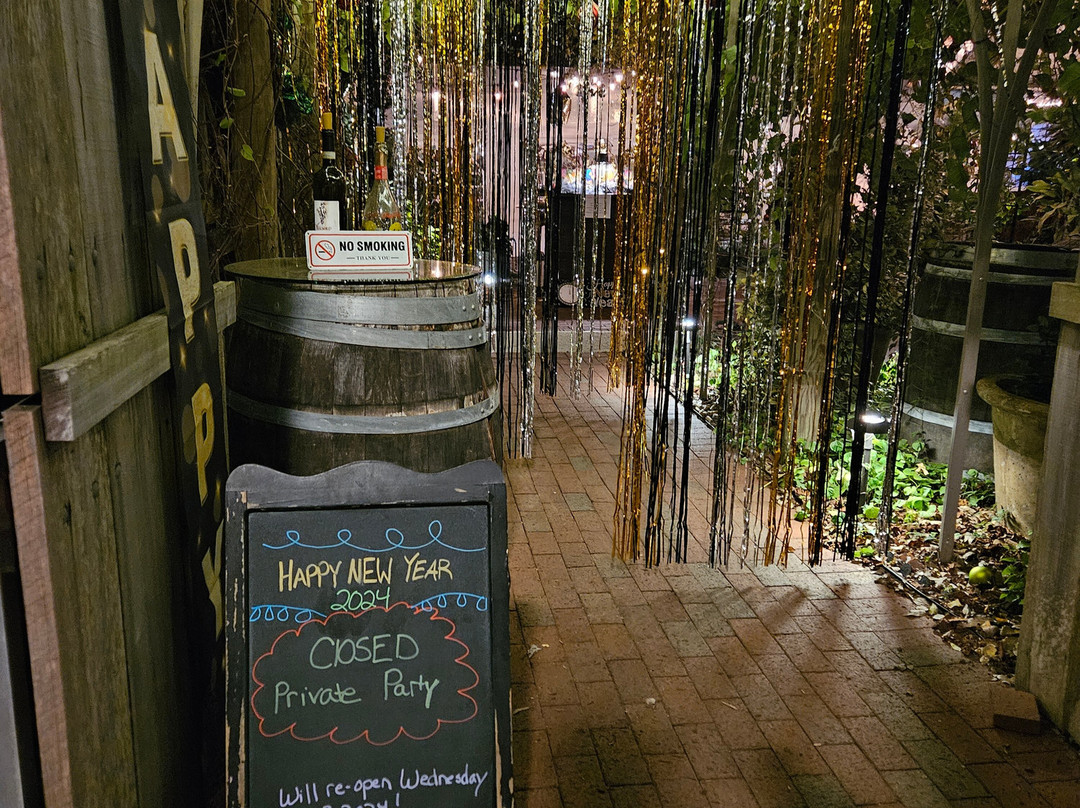 HAPPY
NO SMOKING
THANK YOU
HAPPY NEW YEAR
2024
CLOSED
Private Party
Will re-open Wednesday
2024!